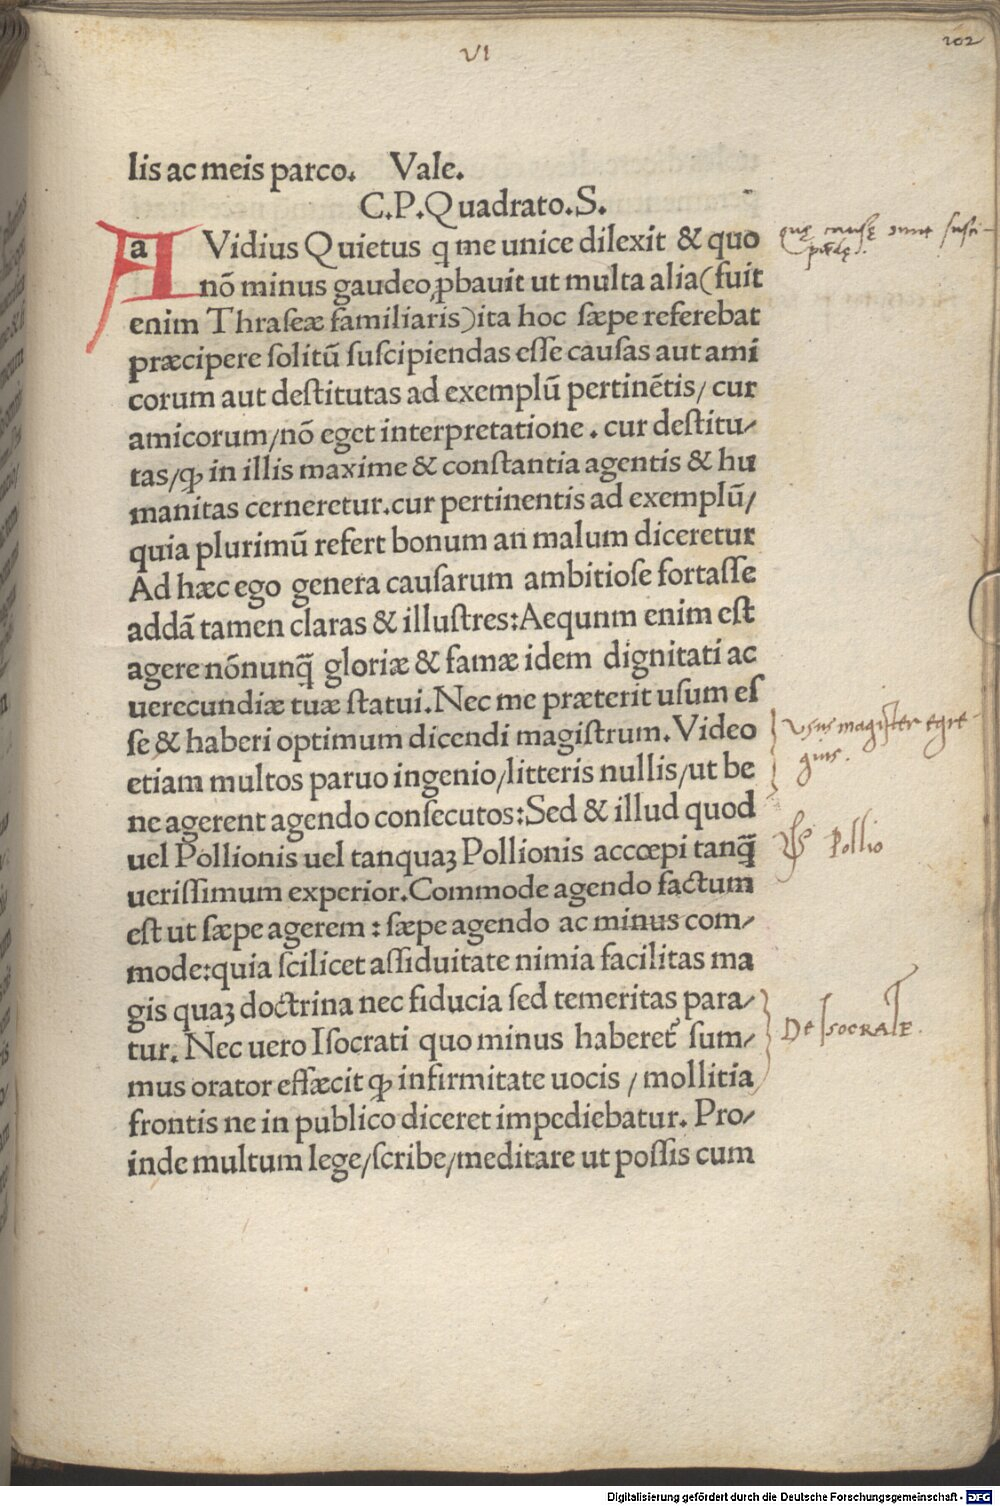 VI
202
lis ac meis parco. Vale.
C.P.Quadrato.S.
aVidius Quietus q̃ me unice dilexit & quo
nõ minus gaudeo ꝓbauit ut multa alia(fuit
enim Thraſeæ familiaris)ita hoc ſæpe referebat
præcipere ſolitũ ſuſcipiendas eſſe cauſas aut ami
corum aut deſtitutas ad exemplũ pertinẽtis/ cur
amicorum/nõ eget interpretatione . cur deſtitu⸗
tas/ꝙ in illis maxime & conſtantia agentis & hu
manitas cerneretur.cur pertinentis ad exemplũ/
quia plurimũ refert bonum an malum diceretur
Ad hæc ego genera cauſarum ambitioſe fortaſſe
addã tamen claras & illuſtres:Aequnm enim eſt
agere nõnunq̃ gloriæ & famæ idem dignitati ac
uerecundiæ tuæ ſtatui.Nec me præterit uſum eſ
ſe & haberi optimum dicendi magiſtrum. Video
etiam multos paruo ingenio/litteris nullis/ut be
ne agerent agendo conſecutos:Sed & illud quod
uel Pollionis uel tanquaꝫ Pollionis accœpi tanq̃
ueriſſimum experior.Commode agendo factum
eſt ut ſæpe agerem : ſæpe agendo ac minus com⸗
mode:quia ſcilicet aſſiduitate nimia facilitas ma
gis quaꝫ doctrina nec fiducia ſed temeritas para⸗
tur. Nec uero Iſocrati quo minus haberet᷑ ſum⸗
mus orator effæcit ꝙ infirmitate uocis / mollitia
frontis ne in publico diceret impediebatur. Pro⸗
inde multum lege/ſcribe/meditare ut poſſis cum
quę causę sunt susci-
pıẽdę.
Vsus magister egre-
gius.
Pollio
De Isocrate.
Digitalisierung gefördert durch die Deutsche Forschungsgemeinschaft - DFG